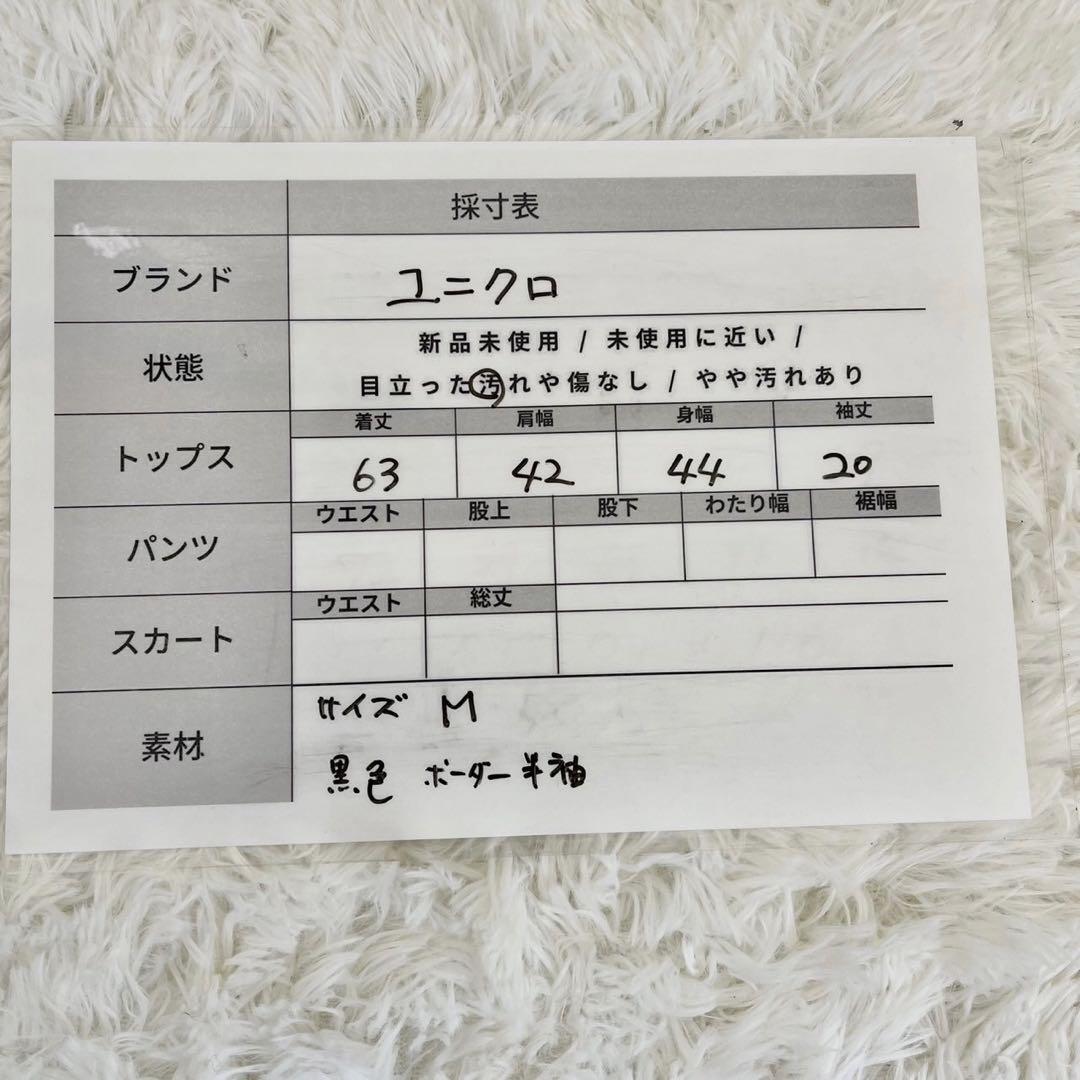 採寸表
ブランド ユニクロ
状態 新品未使用 / 未使用に近い /
目立った汚れや傷なし / やや汚れあり
トップス 着丈 肩幅 身幅 袖丈
63 42 44 20
パンツ ウエスト 股上 股下 わたり幅 裾幅
スカート ウエスト 総丈
素材 サイズ M
黒色 ボーダー半袖